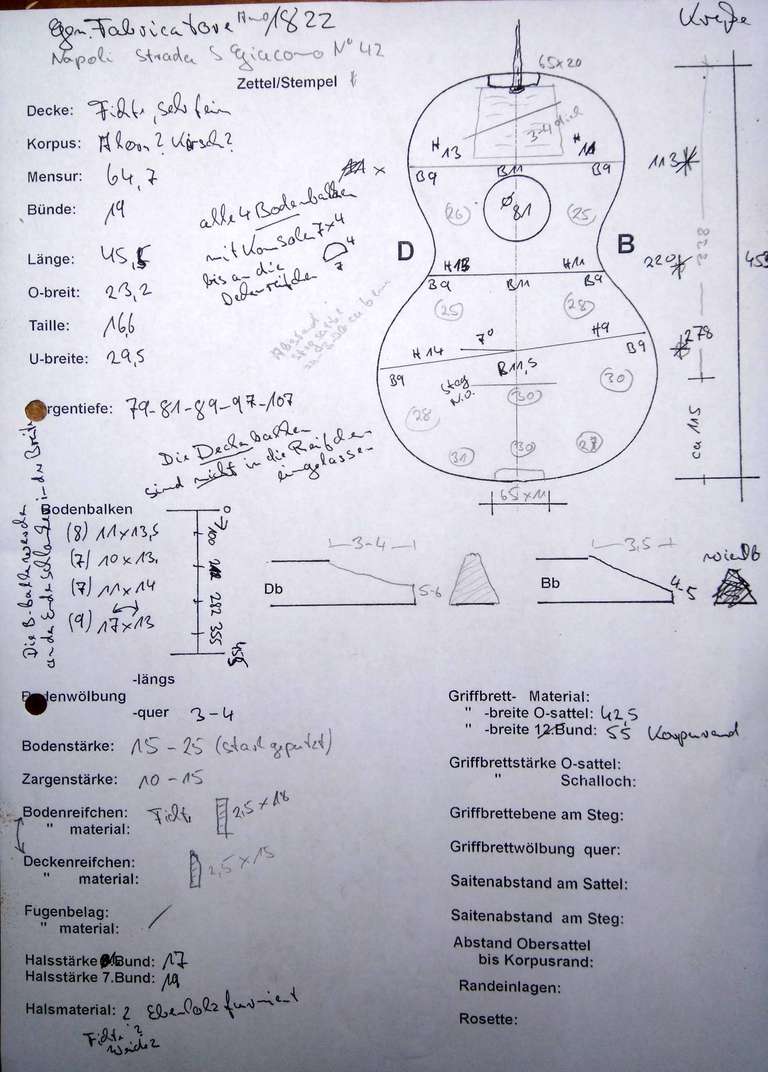 Gen. Fabricatore Anno 1822
Napoli Strada S Giacomo No 42
Kreße
Zettel/Stempel
65x20
Decke: Fichte, sehr fein
Korpus: Ahorn? Kirsch?
Mensur: 64,7
Bünde: 19
alle 4 Bodenbalken
mit Konsolen 7x4
bis an die
Deckenreifchen
4
7
Länge: 45,5
O-breit: 23,2
Taille: 16,6
U-breite: 29,5
Abstand
3-4
H 13
H 11
B9
B11
B9
Ø 81
(26)
(25)
D
B
H13
H11
B9
B11
B9
(25)
(28)
H 14
7°
H9
B9
B11,5
B9
Steg
N.O.
(30)
(30)
(28)
(31)
(30)
(27)
65 x 11
113
220
278
328
455
ca 115
Zargentiefe: 79-81-89-97-107
Die Deckenbalken
sind nicht in die Reifchen
eingelassen
Die B-balken werden
an den Enden schlanker in der Breite
Bodenbalken
(8) 11x13,5
(7) 10x13,
(7) 11x14
(9) 17x13
0
100
282
355
455
3-4
Db
5-6
3,5
wie Db
Bb
4-5
-längs
Bodenwölbung
-quer 3-4
Bodenstärke: 15-25 (stark geputzt)
Zargenstärke: 10-15
Bodenreifchen: Fichte 2,5 x 18
" material:
Deckenreifchen: 2,5 x 15
" material:
Fugenbelag:
" material: /
Halsstärke 1.Bund: 17
Halsstärke 7.Bund: 19
Halsmaterial: ? Ebenholz furniert
Fichte?
Weide?
Griffbrett- Material:
" -breite O-sattel: 42,5
" -breite 12.Bund: 55 Korpusrand
Griffbrettstärke O-sattel:
" Schalloch:
Griffbrettebene am Steg:
Griffbrettwölbung quer:
Saitenabstand am Sattel:
Saitenabstand am Steg:
Abstand Obersattel
bis Korpusrand:
Randeinlagen:
Rosette: